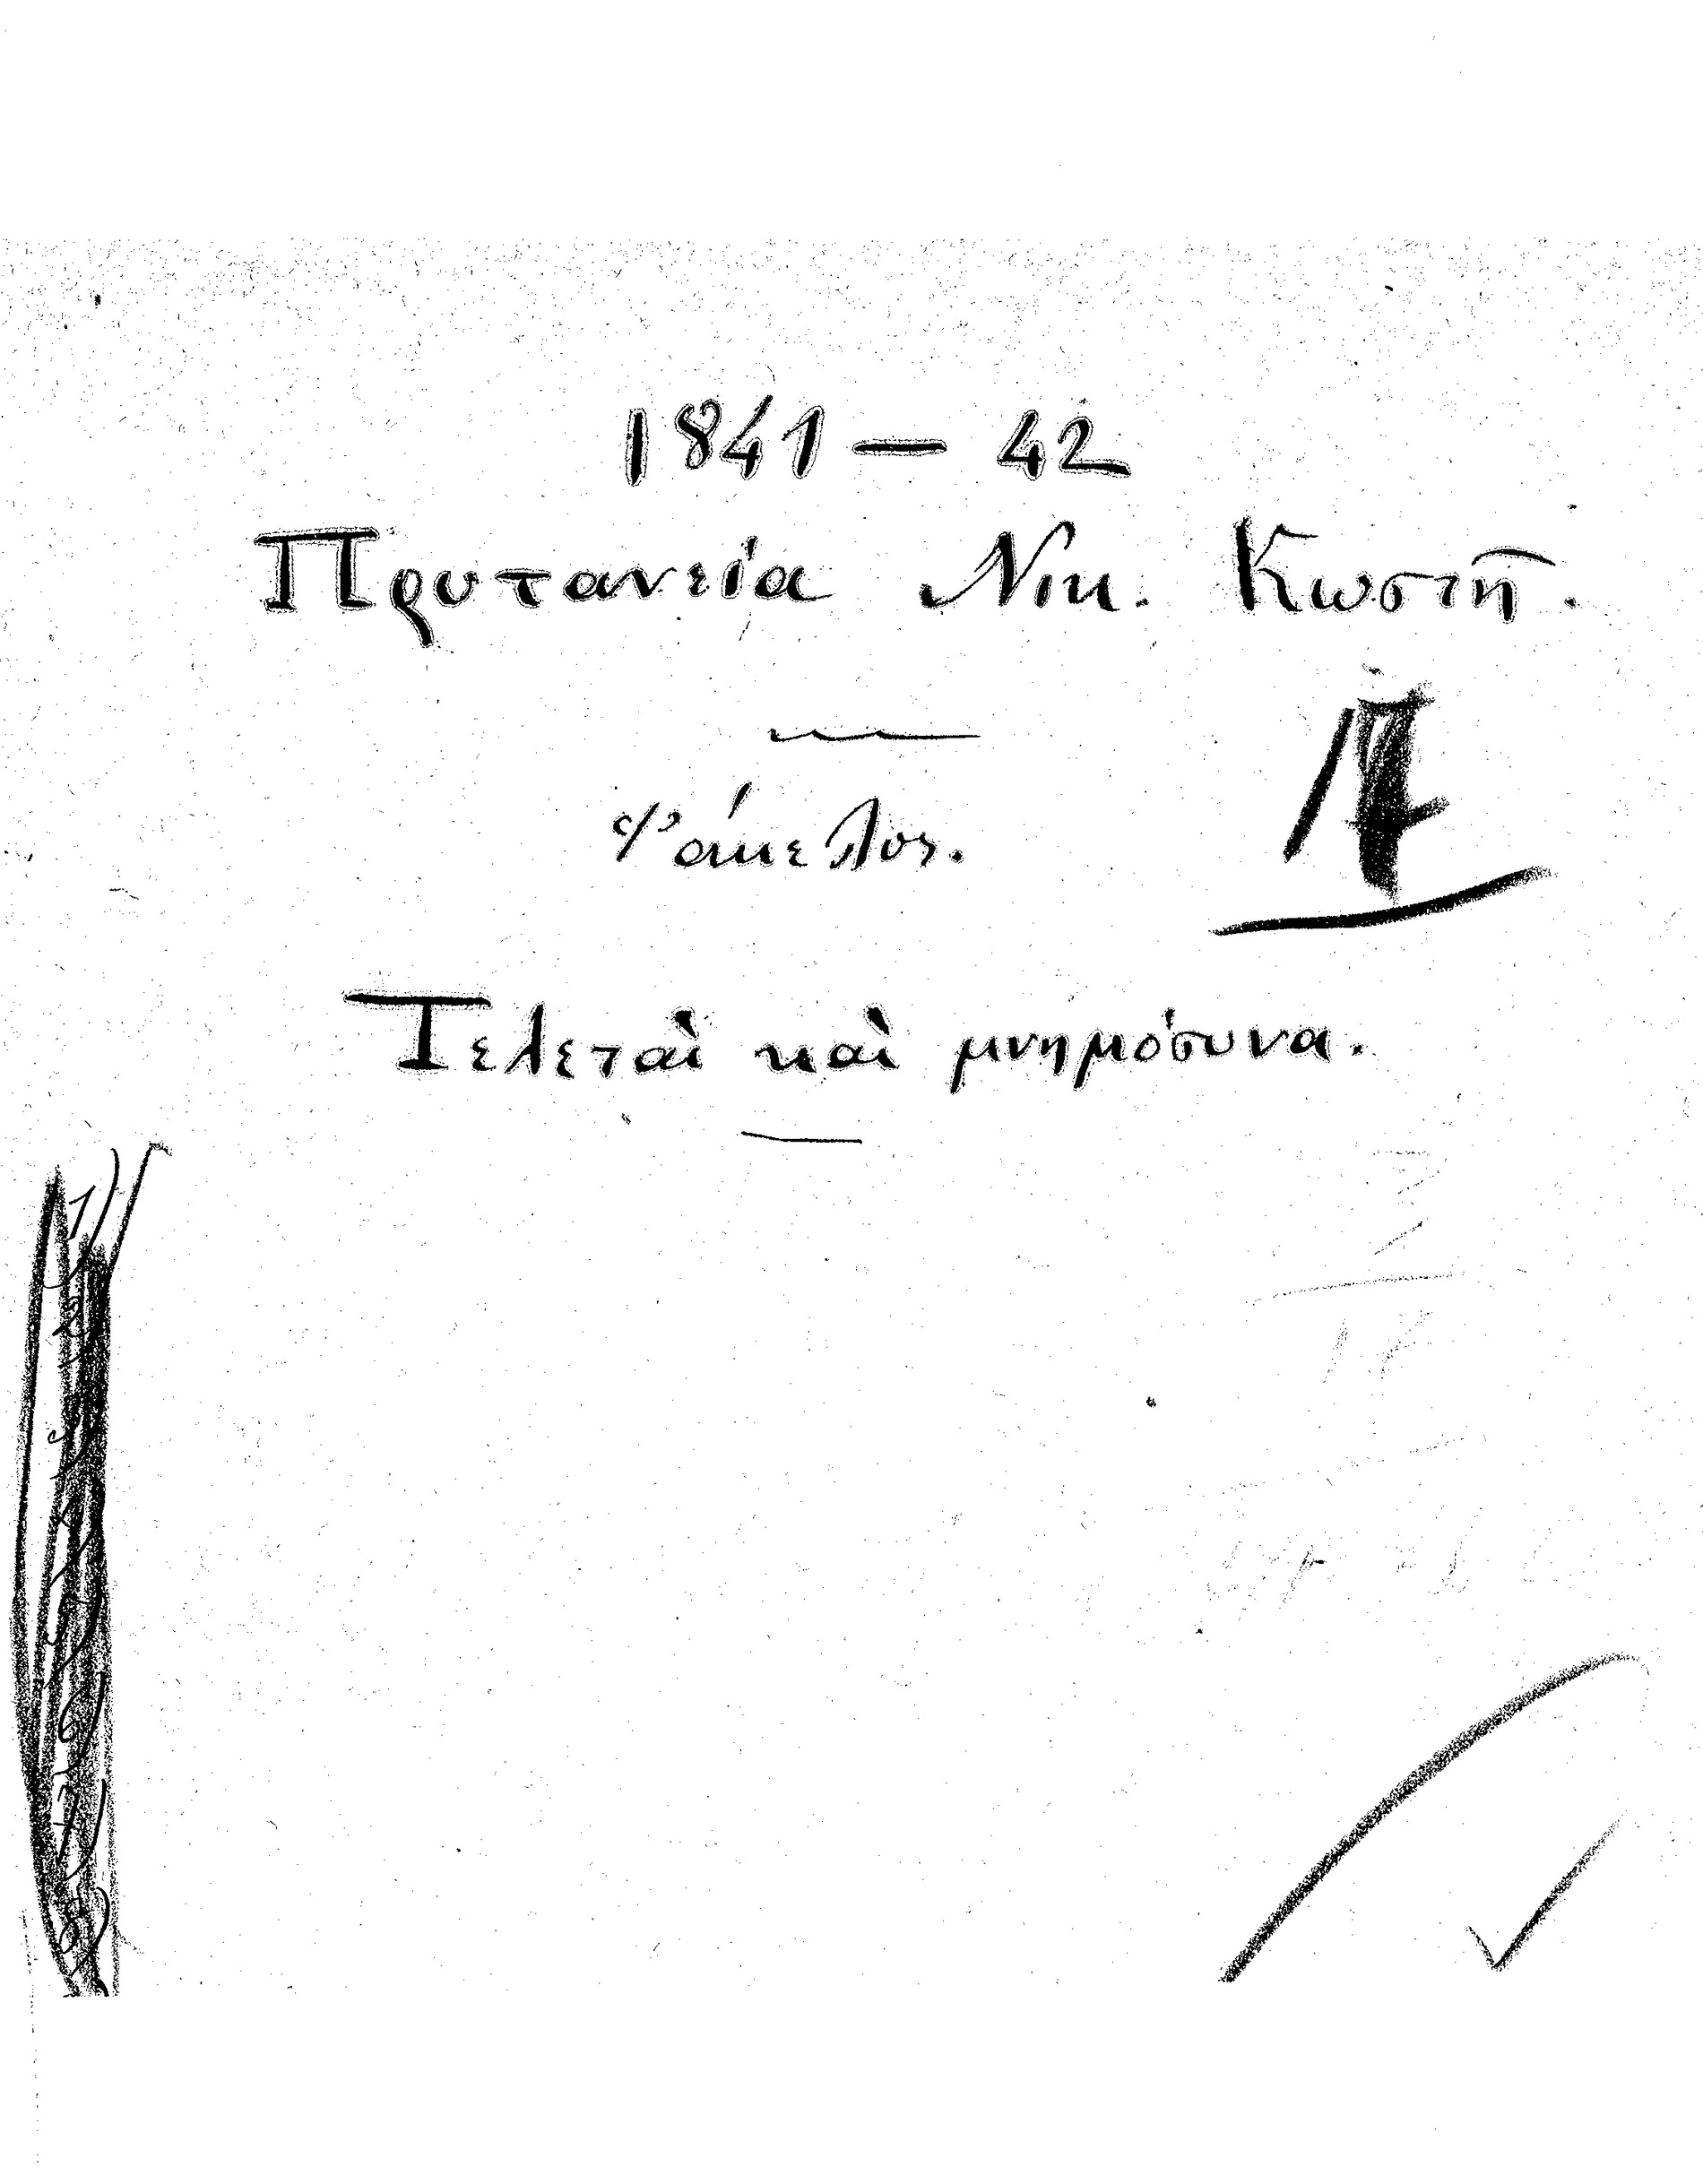 1841 — 42
Πρυτανεία Νικ. Κωστῆ.
Φάκελος. 17
Τελεταὶ καὶ μνημόσυνα.